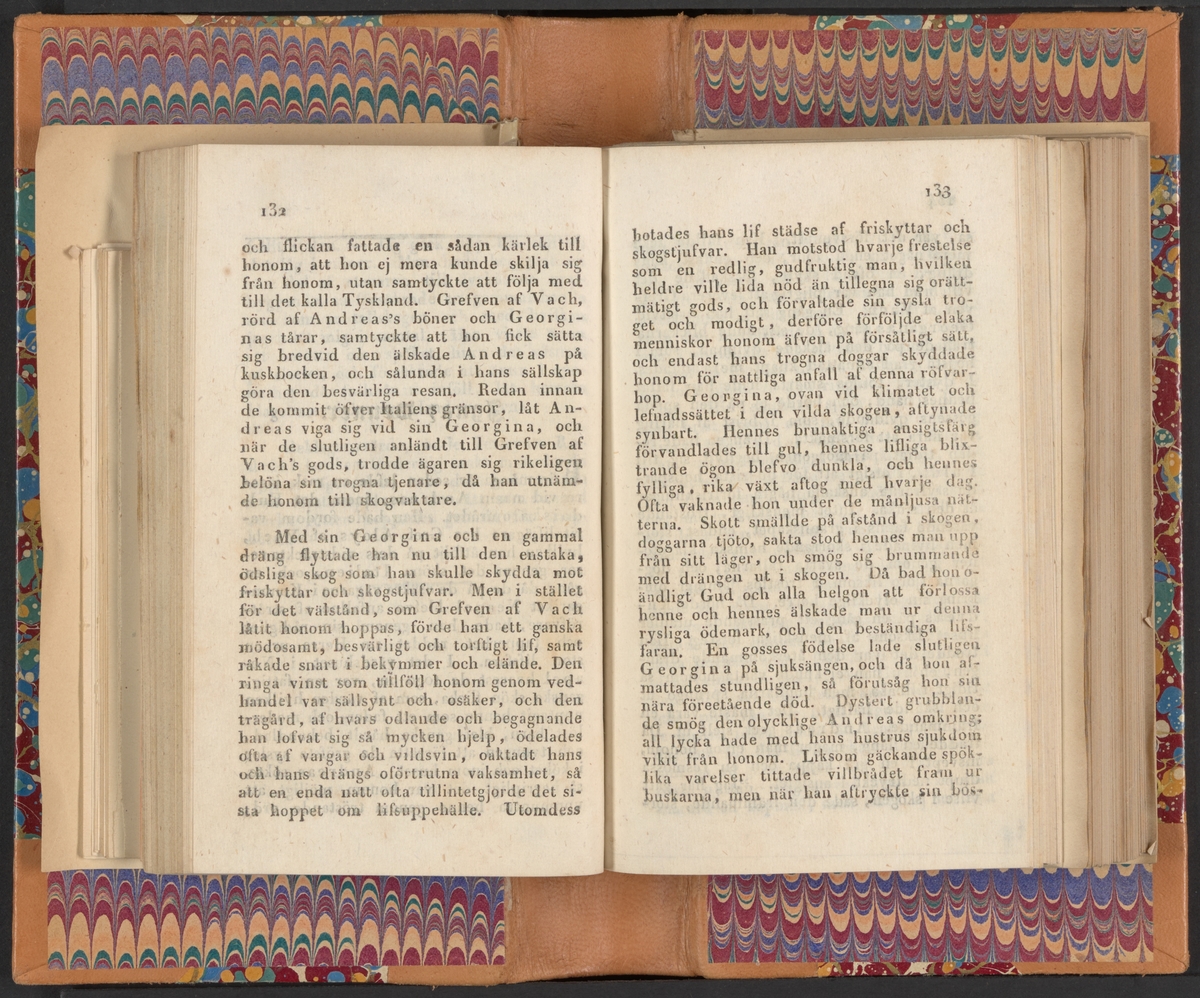 132
och flickan fattade en sådan kärlek till
honom, att hon ej mera kunde skilja sig
från honom, utan samtyckte att följa med
till det kalla Tyskland. Grefven af Vach,
rörd af Andreas's böner och Georgi-
nas tårar, samtyckte att hon fick sätta
sig bredvid den älskade Andreas på
kuskbocken, och sålunda i hans sällskap
göra den besvärliga resan. Redan innan
de kommit öfver Italiens gränsor, lät An-
dreas viga sig vid sin Georgina, och
när de slutligen anländt till Grefven af
Vach's gods, trodde ägaren sig rikeligen
belöna sin trogna tjenare, då han utnäm-
de honom till skogvaktare.
Med sin Georgina och en gammal
dräng flyttade han nu till den enstaka,
ödsliga skog som han skulle skydda mot
friskyttar och skogstjufvar. Men i stället
för det välstånd, som Grefven af Vach
låtit honom hoppas, förde han ett ganska
mödosamt, besvärligt och torftigt lif, samt
råkade snart i bekymmer och elände. Den
ringa vinst som tillföll honom genom ved-
handel var sällsynt och osäker, och den
trägård, af hvars odlande och begagnande
han lofvat sig så mycken hjelp, ödelades
ofta af vargar och vildsvin, oaktadt hans
och hans drängs oförtrutna vaksamhet, så
att en enda natt ofta tillintetgjorde det si-
sta hoppet om lifsuppehälle. Utomdess
133
hotades hans lif städse af friskyttar och
skogstjufvar. Han motstod hvarje frestelse
som en redlig, gudfruktig man, hvilken
heldre ville lida nöd än tillegna sig orätt-
mätigt gods, och förvaltade sin sysla tro-
get och modigt, derföre förföljde elaka
menniskor honom äfven på försåtligt sätt,
och endast hans trogna doggar skyddade
honom för nattliga anfall af denna röfvar-
hop. Georgina, ovan vid klimatet och
lefnadssättet i den vilda skogen, aftynade
synbart. Hennes brunaktiga ansigtsfärg
förvandlades till gul, hennes lifliga blix-
trande ögon blefvo dunkla, och hennes
fylliga, rika växt aftog med hvarje dag.
Ofta vaknade hon under de månljusa nät-
terna. Skott smällde på afstånd i skogen,
doggarna tjöto, sakta stod hennes man upp
från sitt läger, och smög sig brummande
med drängen ut i skogen. Då bad hon o-
ändligt Gud och alla helgon att förlossa
henne och hennes älskade man ur denna
rysliga ödemark, och den beständiga lifs-
faran. En gosses födelse lade slutligen
Georgina på sjuksängen, och då hon af-
mattades stundligen, så förutsåg hon sin
nära föreetående död. Dystert grubblan-
de smög den olycklige Andreas omkring;
all lycka hade med hans hustrus sjukdom
vikit från honom. Liksom gäckande spök-
lika varelser tittade villbrådet fram ur
buskarna, men när han aftryckte sin bös-